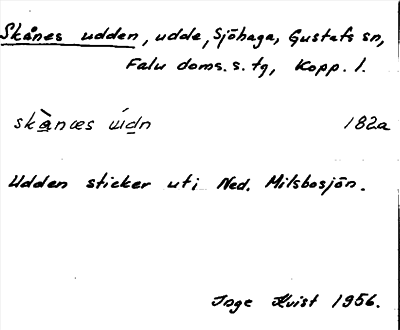 Skånes udden, udde, Sjöhaga, Gustafs sn,
Falu doms. s. tg, Kopp. l.
skànæs ɯ́dn 182a
Udden sticker uti Ned. Milsbosjön.
Inge Kvist 1956.